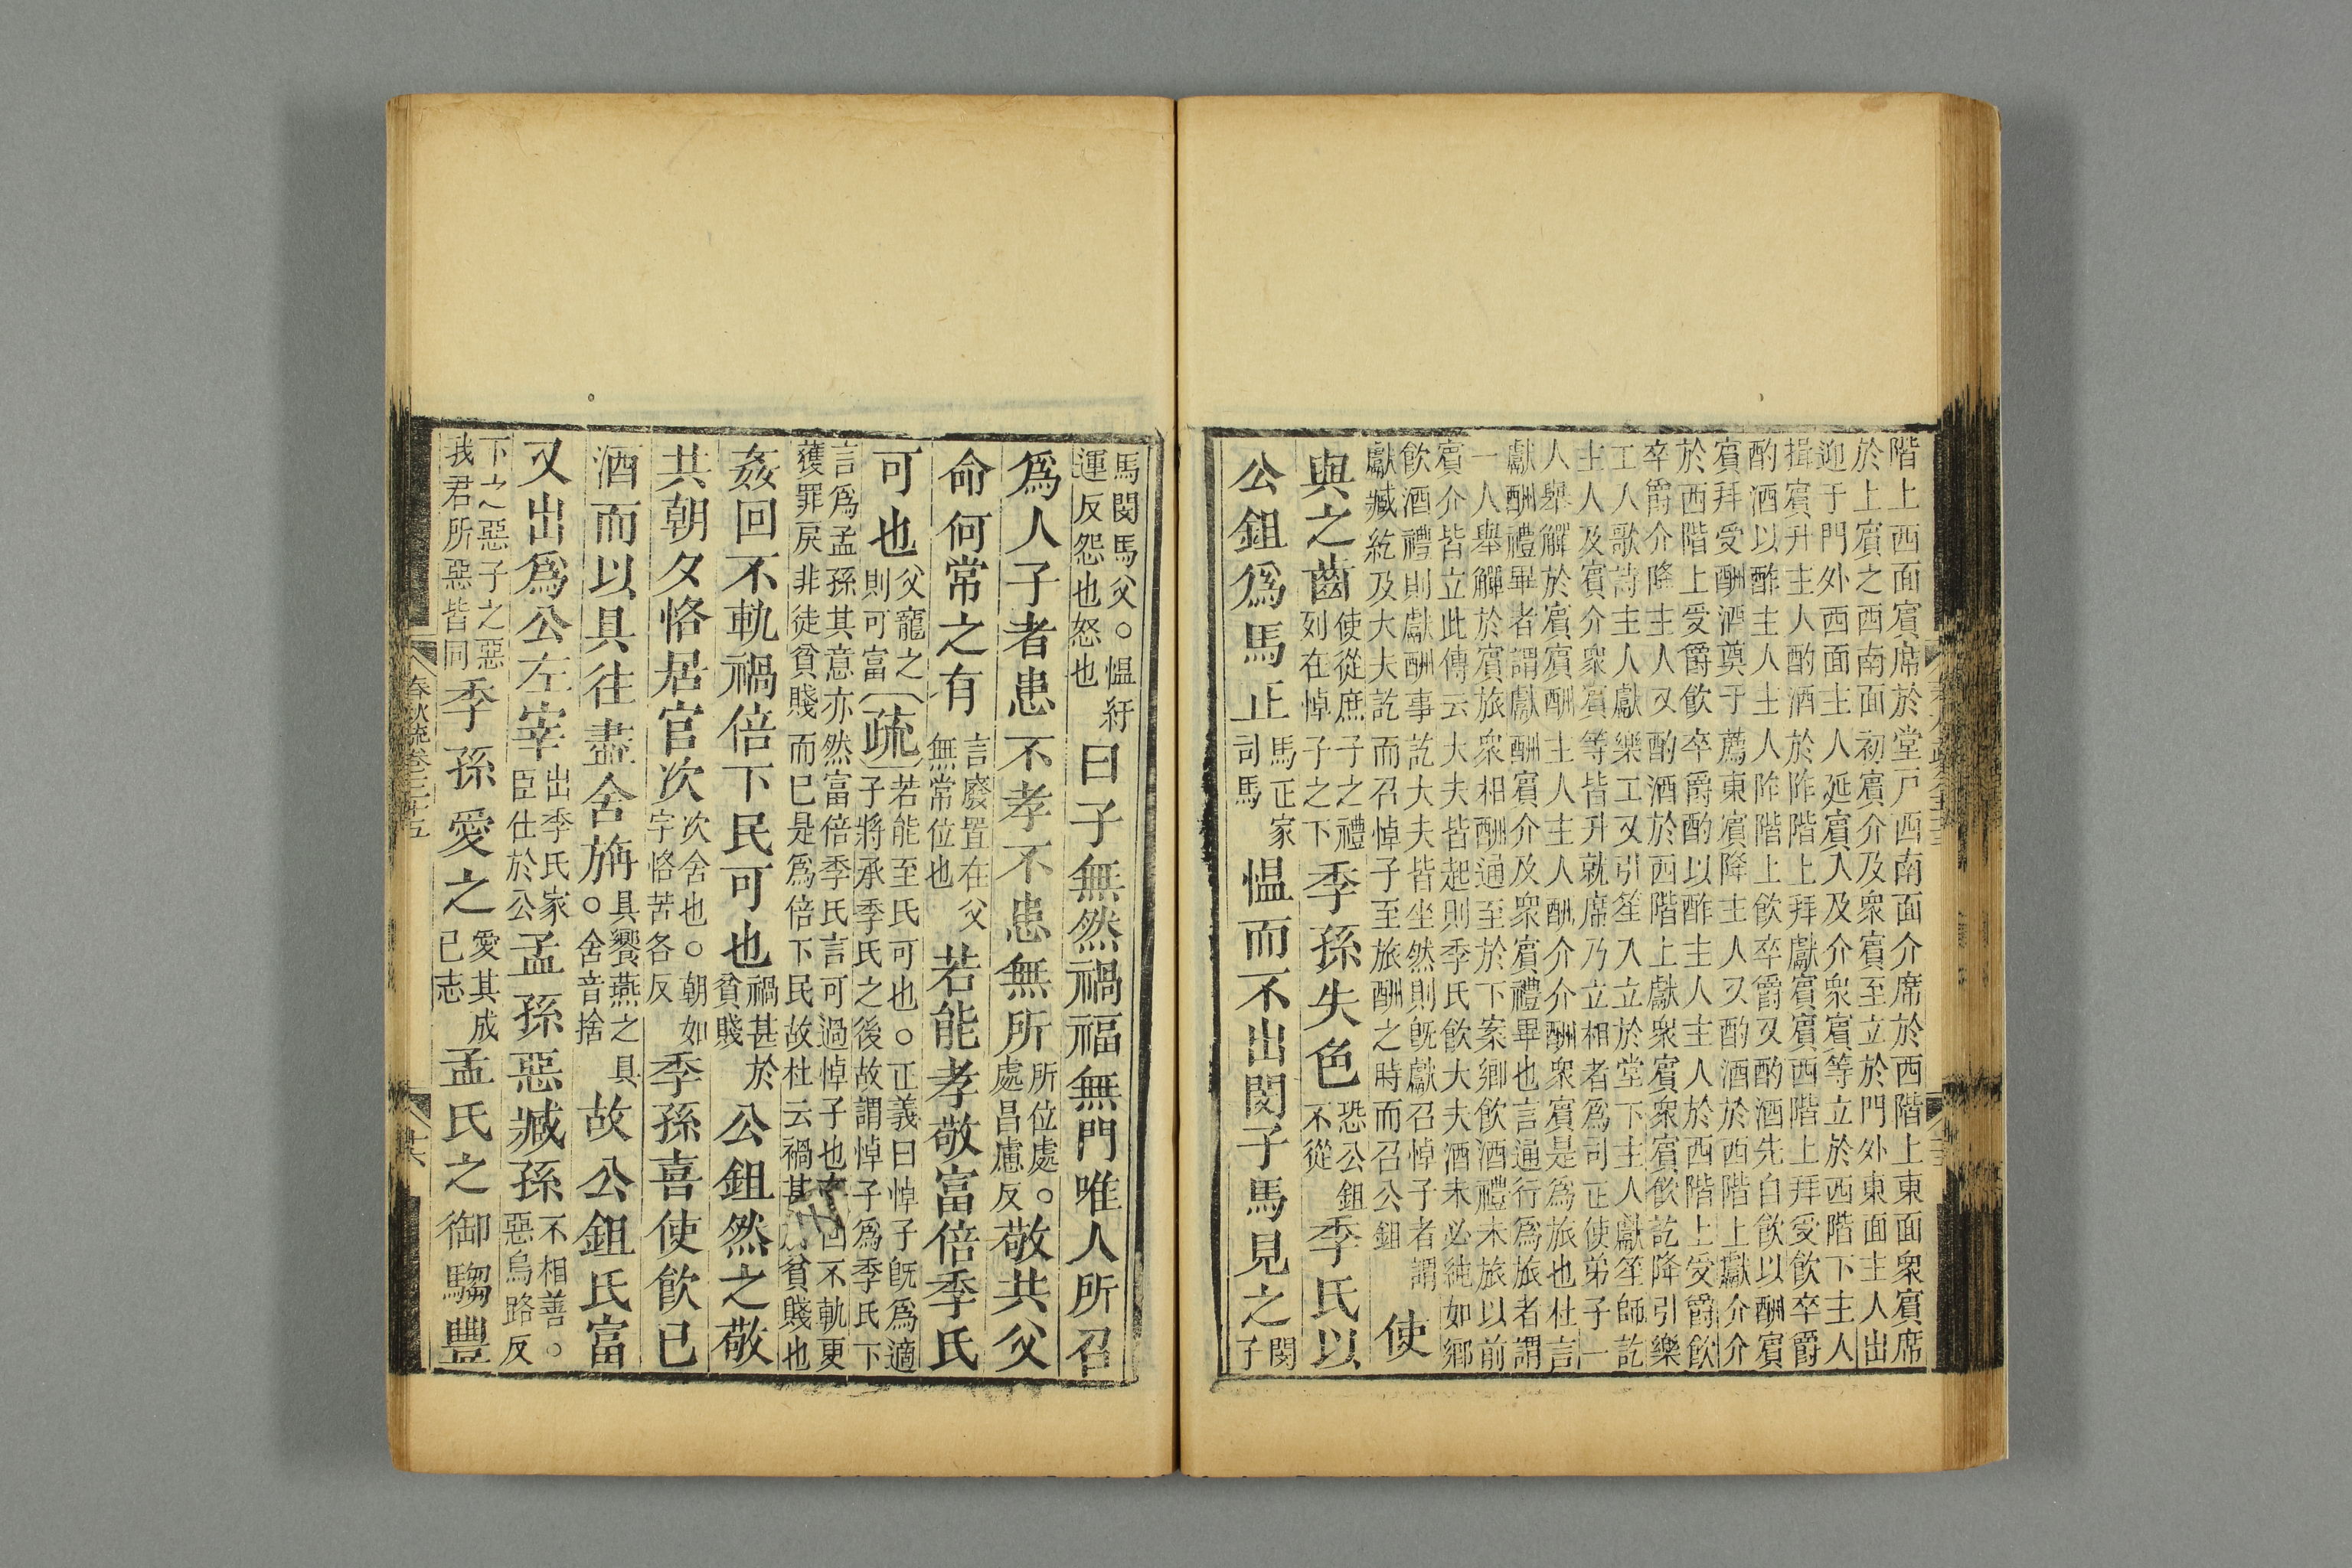 階上西面賓席於堂戶西南面介席於西階上東面衆賓席
於上賓之西南面初賓介及衆賓至立於門外東面主人出
迎于門外西面主人延賓入及介衆賓等立於西階下主人
揖賓升主人酌酒於阼階上拜獻賓賓西階上拜受飲卒爵
酌酒以酢主人主人阼階上飲卒爵又酌酒先自飲以酬賓
賓拜受酬酒奠于薦東賓降主人又酌酒於西階上獻介介
於西階上受爵飲卒爵酌以酢主人主人於西階上受爵飲
卒爵介降主人又酌酒於西階上獻衆賓衆賓飲訖降引樂
工人歌詩主人獻樂工又引笙入立於堂下主人獻笙師訖
主人及賓介衆賓等皆升就席乃立相者爲司正使弟子一
人舉觶於賓賓酬主人主人酬介介酬衆賓是爲旅也杜言
獻酬禮畢者謂獻酬賓介及衆賓禮畢也言通行爲旅者謂
一人舉觶於賓旅衆相酬通至於下案鄉飲酒禮未旅以前
賓介皆立此傳云大夫皆起則季氏飲大夫酒未必純如鄉
飲酒禮則獻酬事訖大夫皆坐然則旣獻召悼子者謂
獻臧紇及大夫訖而召悼子至旅酬之時而召公鉏 使
與之齒使從庶子之禮列在悼子之下季孫失色恐公鉏不從季氏以
公鉏爲馬正馬正家司馬慍而不出閔子馬見之閔子
馬閔馬父○慍紆運反怨也怒也曰子無然禍福無門唯人所召
爲人子者患不孝不患無所所位處○處昌慮反敬共父
命何常之有言廢置在父無常位也若能孝敬富倍季氏
可也父寵之則可富疏若能至氏可也○正義曰悼子旣爲適子將承季氏之後故謂悼子爲季氏下
言爲孟孫其意亦然富倍季氏言可過悼子也回不軌更
獲罪戾非徒貧賤而已是爲倍下民故杜云禍甚貧賤也
姦回不軌禍倍下民可也禍甚於貧賤公鉏然之敬
共朝夕恪居官次次舍也○朝如字恪苦各反季孫喜使飮己
酒而以具往盡舍旃具饗燕之具○舍音捨故公鉏氏富
又出爲公左宰出季氏家臣仕於公孟孫惡臧孫不相善○惡烏路反
下之惡子之惡我君所惡皆同季孫愛之愛其成己志孟氏之御騶豐
春秋疏卷三十五
廿六